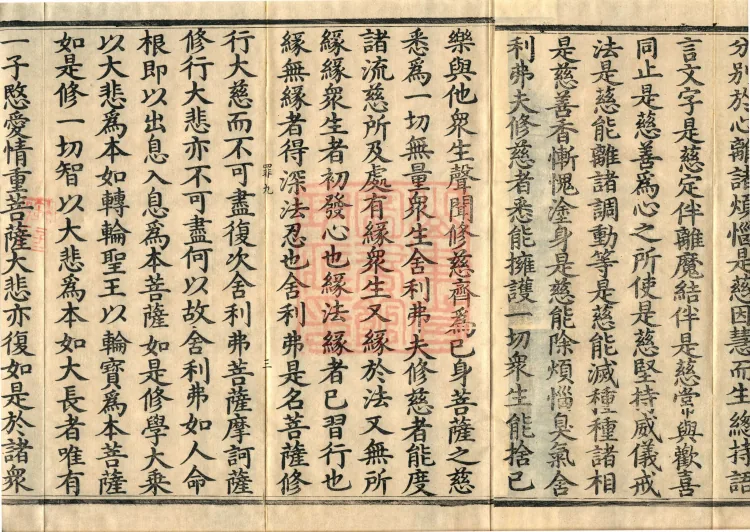 分別於心離諸煩惱是慈因慧而生緫持語
言文字是慈定伴離魔結伴是慈常與歡喜
同止是慈善爲心之所使是慈堅持威儀戒
法是慈能離諸調動等是慈能滅種種諸相
是慈善香慚愧塗身是慈能除煩惱臭氣舍
利弗夫修慈者悉能擁護一切衆生能捨已
樂與他衆生聲聞修慈齊爲已身菩薩之慈
悉爲一切無量衆生舍利弗夫修慈者能度
諸流慈所及處有緣衆生又緣於法又無所
緣緣衆生者初發心也緣法緣者已習行也
緣無緣者得深法忍也舍利弗是名菩薩修
罪九 三
行大慈而不可盡復次舍利弗菩薩摩訶薩
修行大悲亦不可盡何以故舍利弗如人命
根即以出息入息爲本菩薩如是修學大乗
以大悲爲本如轉輪聖王以輪寶爲本菩薩
如是修一切智以大悲爲本如大長者唯有
一子愍愛情重菩薩大悲亦復如是於諸衆